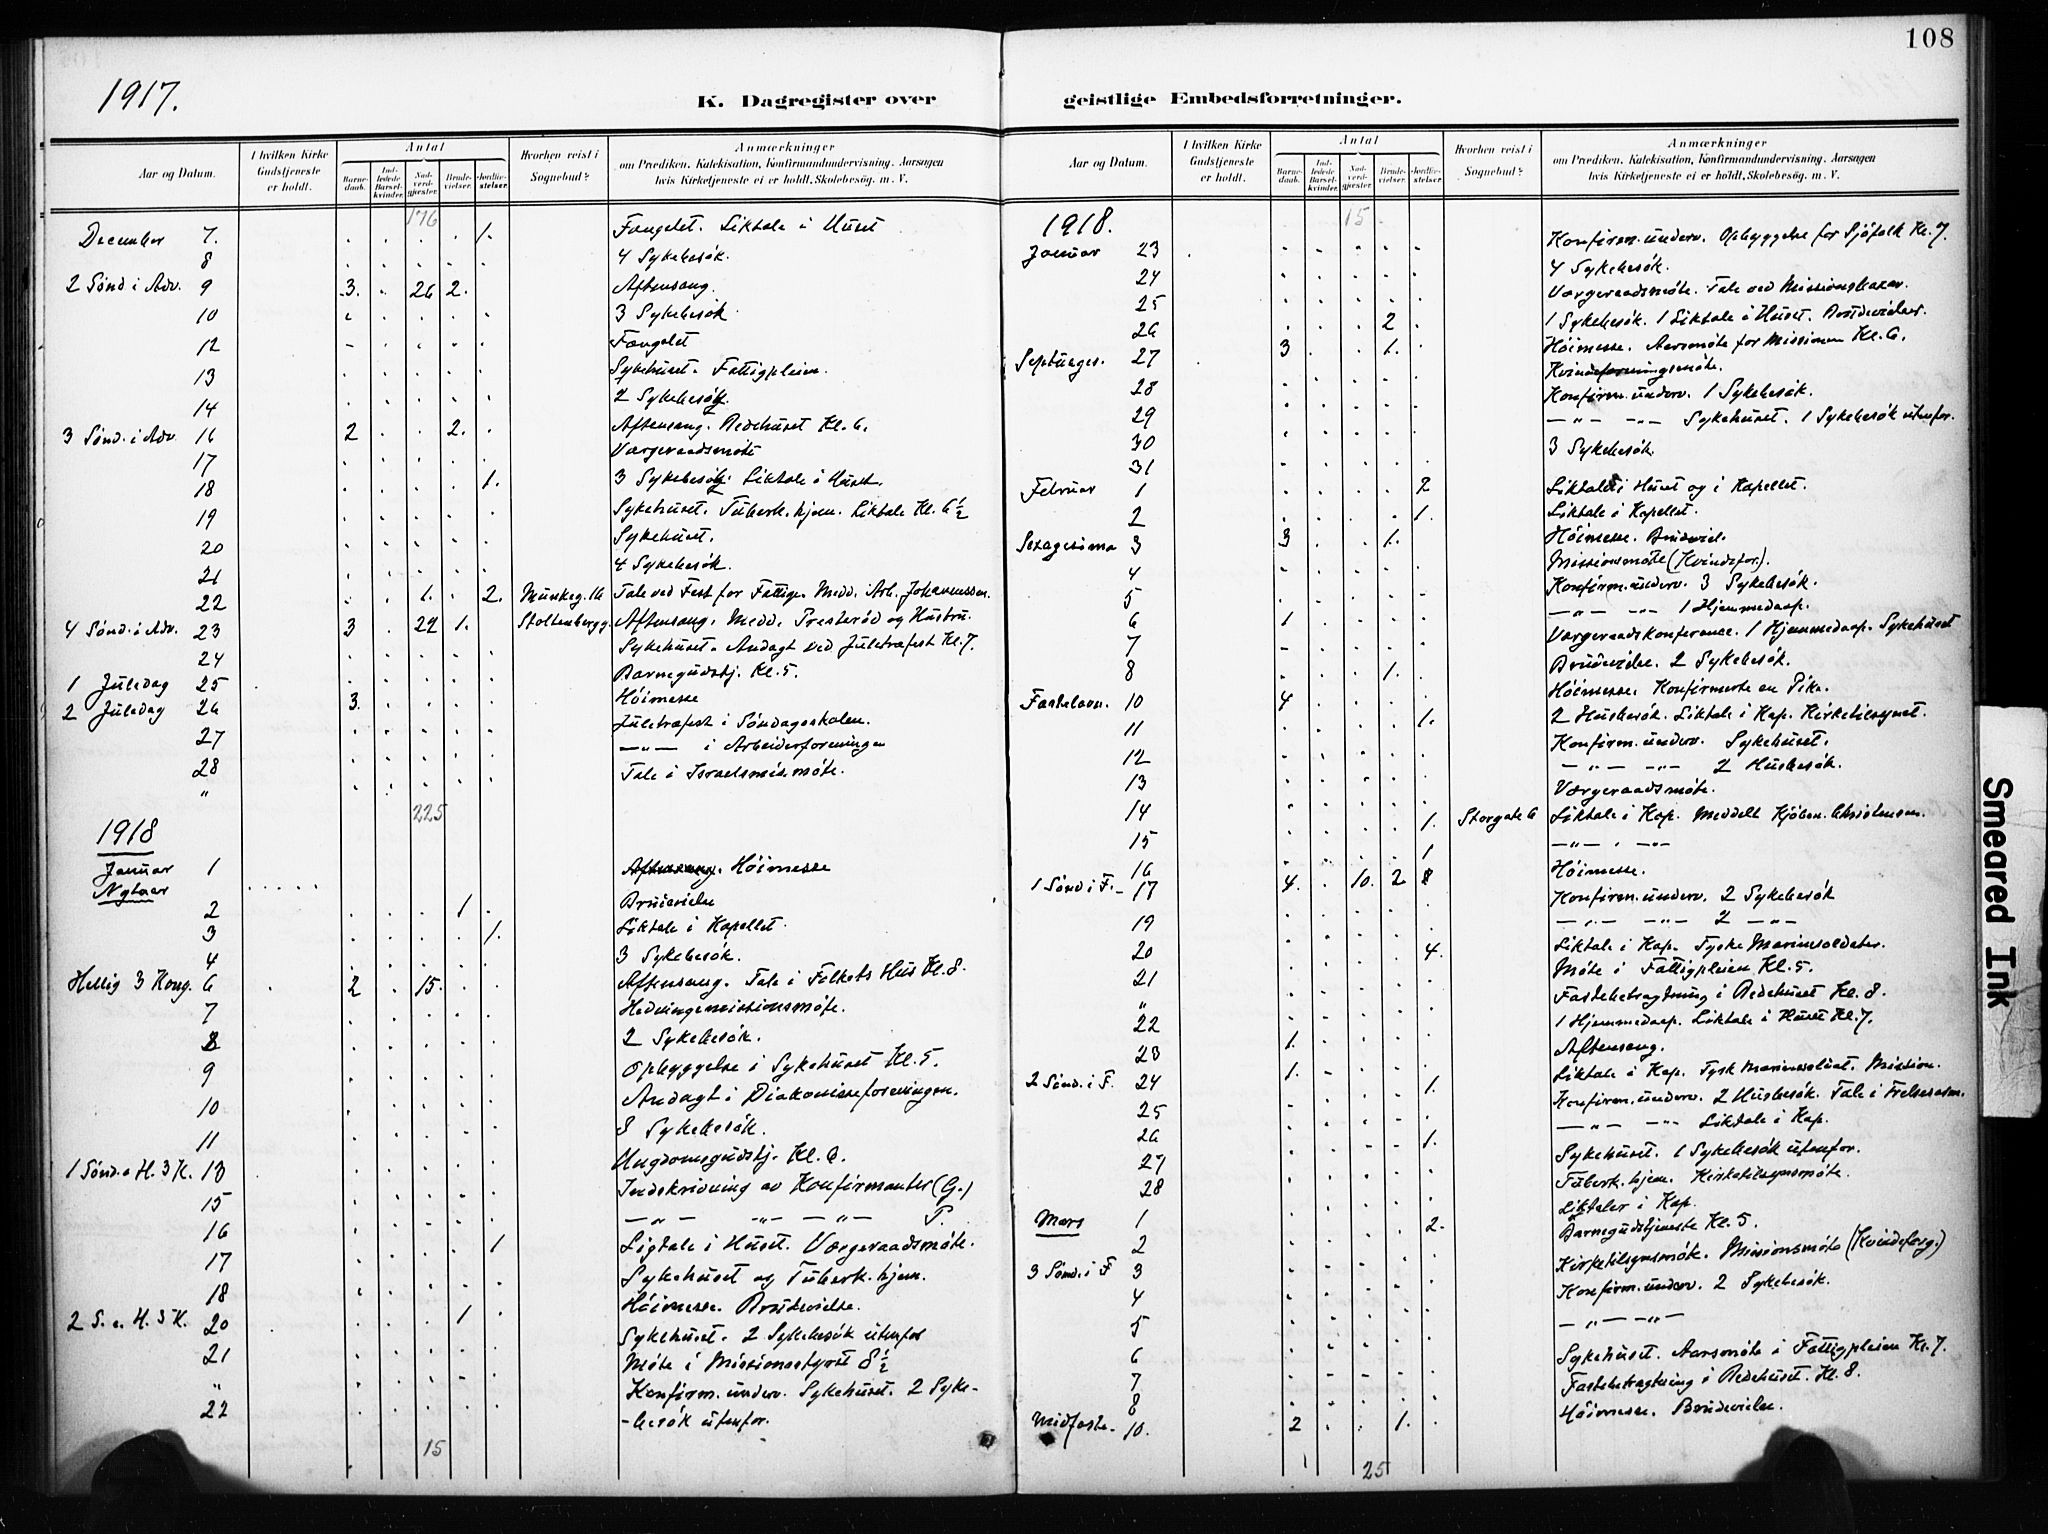 108
1917.
K. Dagregister over geistlige Embedsforretninger.
Aar og Datum.
I hvilken Kirke Gudstjeneste er holdt.
Antal
Barnedaab.
Indledede Barselkvinder.
Nadverdgjester.
Brudevielser.
Jordfæstelser.
Hvorhen reist i Sognebud?
Anmærkninger
om Prædiken, Katekisation, Konfirmandundervisning, Aarsagen
hvis Kirketjeneste ei er holdt, Skolebesøg. m. V.
176
December 7. 1. Fængslet. Liktale i Huset
8 4 Sykebesök.
2 Sønd i Adv. 9 3. 26 2. Aftensang.
10 3 Sykebesök.
12 Fængslet
13 Sykehuset. Fattigpleien.
14 2 Sykebesök
3 Sønd. i Adv. 16 2 2. Aftensang. Bedehuset Kl. 6.
17 Værgeraadsmöte
18 1. 3 Sykebesök. Liktale i Huset.
19 Sykehuset. Tüberk.hjem. Liktale Kl. 6½
20 Sykehuset.
21 4 Sykebesök.
22 1. 2. Munkeg. 16 Tale ved Fest for Fattige. Medd. Arb. Johannessen.
4 Sønd. i Adv. 23 3 22 1. Stoltenbergg. Aftensang. Medd. Presteröd og Hustru.
24 Sykehuset. Andagt ved Juletræfest Kl. 7.
1 Juledag 25 Barnegudstj. Kl. 5.
2 Juledag 26 3. Höimesse
27 Juletræfest i Söndagsskolen.
28 —„— i Arbeiderforeningen
„ Tale i Israelsmis.möte.
225
1918
Januar 1 Aftensang. Höimesse
Nytaar
2 1 Brudevielse
3 1. Liktale i Kapellet
4 3 Sykebesök.
Hellig 3 Kong. 6 2 15. Aftensang. Tale i Folkets Hus Kl. 8.
7 Hedningemissionsmöte.
8 2 Sykebesök.
9 Opbyggelse i Sykehuset Kl. 5.
10 Andagt i Diakonisseforeningen.
11 8 Sykebesök.
1 Sønd. e H. 3 K. 13 Ungdomsgudstj. Kl. 6.
15 Indskrivning av Konfirmanter (G.)
16 —„— —„— —„— P.
17 1 Ligtale i Huset. Værgeraadsmöte.
18 Sykehuset og Tüberk.hjem.
2 S. e. H. 3 K. 20 1 Höimesse. Brudevielse.
21 Sykehuset. 2 Sykebesök utenfor
„ Möte i Missionsstyret 8½
22 Konfirm.underv. Sykehuset. 2 Syke-
-besök utenfor.
15
1918. 15
Januar 23 Konfirm.underv. Opbyggelse for Sjöfolk Kl. 7.
24 4 Sykebesök.
25 Værgeraadsmöte. Tale ved Missionsbasar.
26 2 1 Sykebesök. 1 Liktale i Huset. Brudevielser.
Septuages. 27 3 1. Höimesse. Aarsmöte for Missionen Kl. 6.
28 Kvindeforeningsmöte.
29 Konfirm.underv. 1 Sykebesök.
30 —„— —„— Sykehuset. 1 Sykebesök utenfor.
31 3 Sykebesök.
Februar 1 2 Liktale i Huset og i Kapellet.
2 1. Liktale i Kapellet.
Sexagesima 3 3 1. Höimesse. Brudeviel.
4 Missionsmöte (Kvindefor.).
5 Konfirm.underv. 3 Sykebesök.
6 1 —„— —„— 1 Hjemmedaap.
7 Værgeraadskonferance. 1 Hjemmedaap. Sykehuset
8 1. Brudevielse. 2 Sykebesök.
Fastelavn. 10 4 Höimesse. Konfirmerte en Pike.
11 1. 2 Husbesök. Liktale i Kap. Kirketilsynet.
12 Konfirm.underv. Sykehuset.
13 —„— —„— 2 Husbesök.
14 Værgeraadsmöte.
15 1. Storgate 6 Liktale i Kap. Meddelt Kjöbm. Christensen.
16 1 —„— —„—
1 Sønd i F. 17 4. 10. 2 Höimesse.
19 Konfirm.underv. 2 Sykebesök
20 —„— —„— 2 —„—
21 4. Liktale i Kap. Tyske Marinesoldater.
„ Möte i Fattigpleien Kl. 5.
22 Fastebetragtning i Bedehuset Kl. 8.
23 1. 1 Hjemmedaap. Liktale i Huset Kl. 7.
2 Sønd. i F. 24 1. Aftensang.
25 1. Liktale i Kap. Tysk Marinesoldat. Mission.
26 Konfirm.underv. 2 Husbesök. Tale i Frelsesarm.
27 1. —„— —„— Liktale i Kap.
28 Sykehuset. 1 Sykebesök utenfor.
Tüberk.hjem. Kirketilsynsmöte.
Mars 1 2. Liktaler i Kap.
2 Barnegudstjeneste Kl. 5.
3 Sønd. i F 3 Kirketilsynsmök. Missionsmöte (Kvindeforg.)
4 Konfirm.underv. 2 Sykebesök.
5 —„— —„—
6 Sykehuset. Aarsmöte i Fattigpleien Kl. 7.
7 Fastebetragtning i Bedehuset. Kl. 8.
8
Midfaste. 10. 2 1. Höimesse. Brudevielse.
25
Smeared Ink